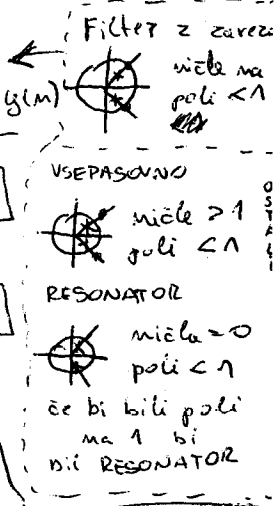 Filter z zarezo
ničle na
y(n)
poli < 1
VSEPASOVNO
ničle > 1
poli < 1
OSTALI
RESONATOR
ničla = 0
poli < 1
če bi bili poli
na 1 bi
bil RESONATOR